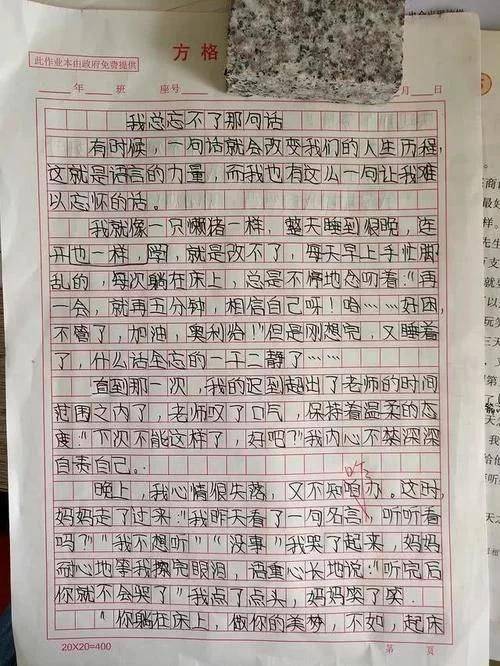 此作业本由政府免费提供
方格
年 班 座号 月 日
我总忘不了那句话
有时候，一句话就会改变我们的人生历程，
这就是语言的力量，而我也有这么一句让我难
以忘怀的话。
我就像一只懒猪一样，整天睡到很晚，连
开也一样，学，就是改不了，每天早上手忙脚
乱的，每次躺在床上，总是不停地念叨着："再
一会，就再五分钟，相信自己呀！哈……好困，
不管了，加油，奥利给！"但是刚想完，又睡着
了，什么话全忘的一干二静了……
直到那一次，我的迟到超出了老师的时间
范围之内了，老师叹了口气，保持着温柔的态
度："下次不能这样了，好吧？"我内心不禁深深
自责自己。
晚上，我心情很失落，又不知咋办。这时，
妈妈走了过来："我昨天看了一句名言，听听看
吗？""我不想听""没事"我哭了起来，妈妈
耐心地等我擦完眼泪，语重心长地说："听完后
你就不会哭了"我点了点头，妈妈笑了笑。
"你躺在床上，做你的美梦，不如，起床
20X20=400
第 页